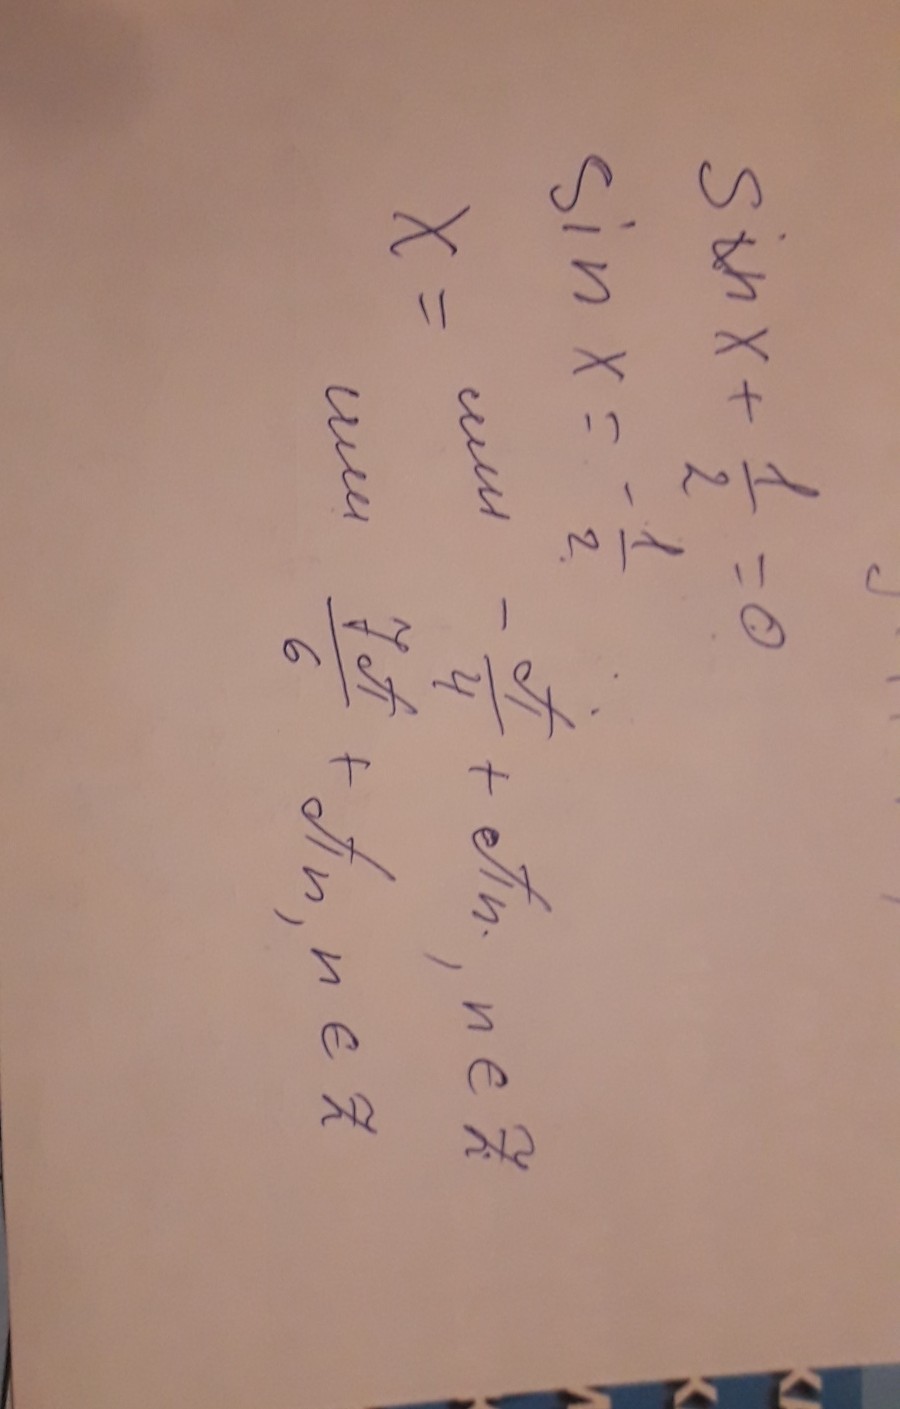 Sin x + 1/2 = 0
Sin x = - 1/2
x = или - π/4 + πn, n ∈ Z
или 7π/6 + πn, n ∈ Z